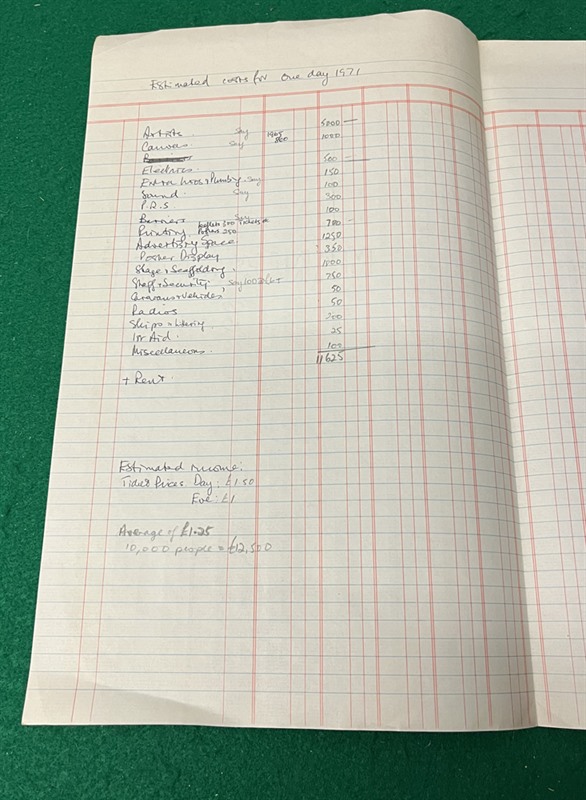 Estimated costs for one day 1971
Artists. Say 5000 —
Canvas Say 1965 800 1000
Electrics. 500 —
Extra Loos + Plumbing. Say 150
Sound. Say 100
P.R.S 300
Barriers Say 100
Printing leaflets 300 Tickets Posters 250 700 —
Advertising Space 1250
Poster Display 350
Stage + Scaffolding. 1000
Staff + Security, Say 750
Caravans + Vehicles 50
Radios 50
Skips + 200
1st Aid. 25
Miscellaneous. 100
11625
+ Rent.
Estimated Income:
Ticket Prices Day: £1.50
Eve: £1
Average of £1.25
10,000 people = £12,500